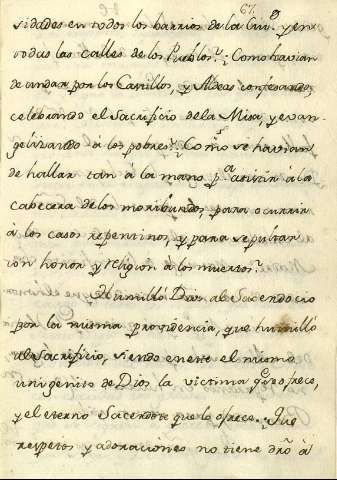 67.
sidades en todos los barrios de la Ciu.d y en
todas las calles de los Pueblos? ¿Como havian
de andar por los Castillos, y Aldeas confesando,
celebrando el Sacrificio de la Misa, y evan-
gelizando à los pobres? ¿Como se havian
de hallar tan à la mano p.a asistir à la
cabecera de los moribundos, para ocurrir
à los casos repentinos, y para sepultar
con honor y religion à los muertos?
Humilló Dios al Sacerdocio
por la misma providencia, que humilló
al Sacrificio, siendo en este el mismo
unigenito de Dios la victima q.e se ofrece,
y el eterno Sacerdote que lo ofrece. ¿Que
respetos y adoraciones no tiene dro à